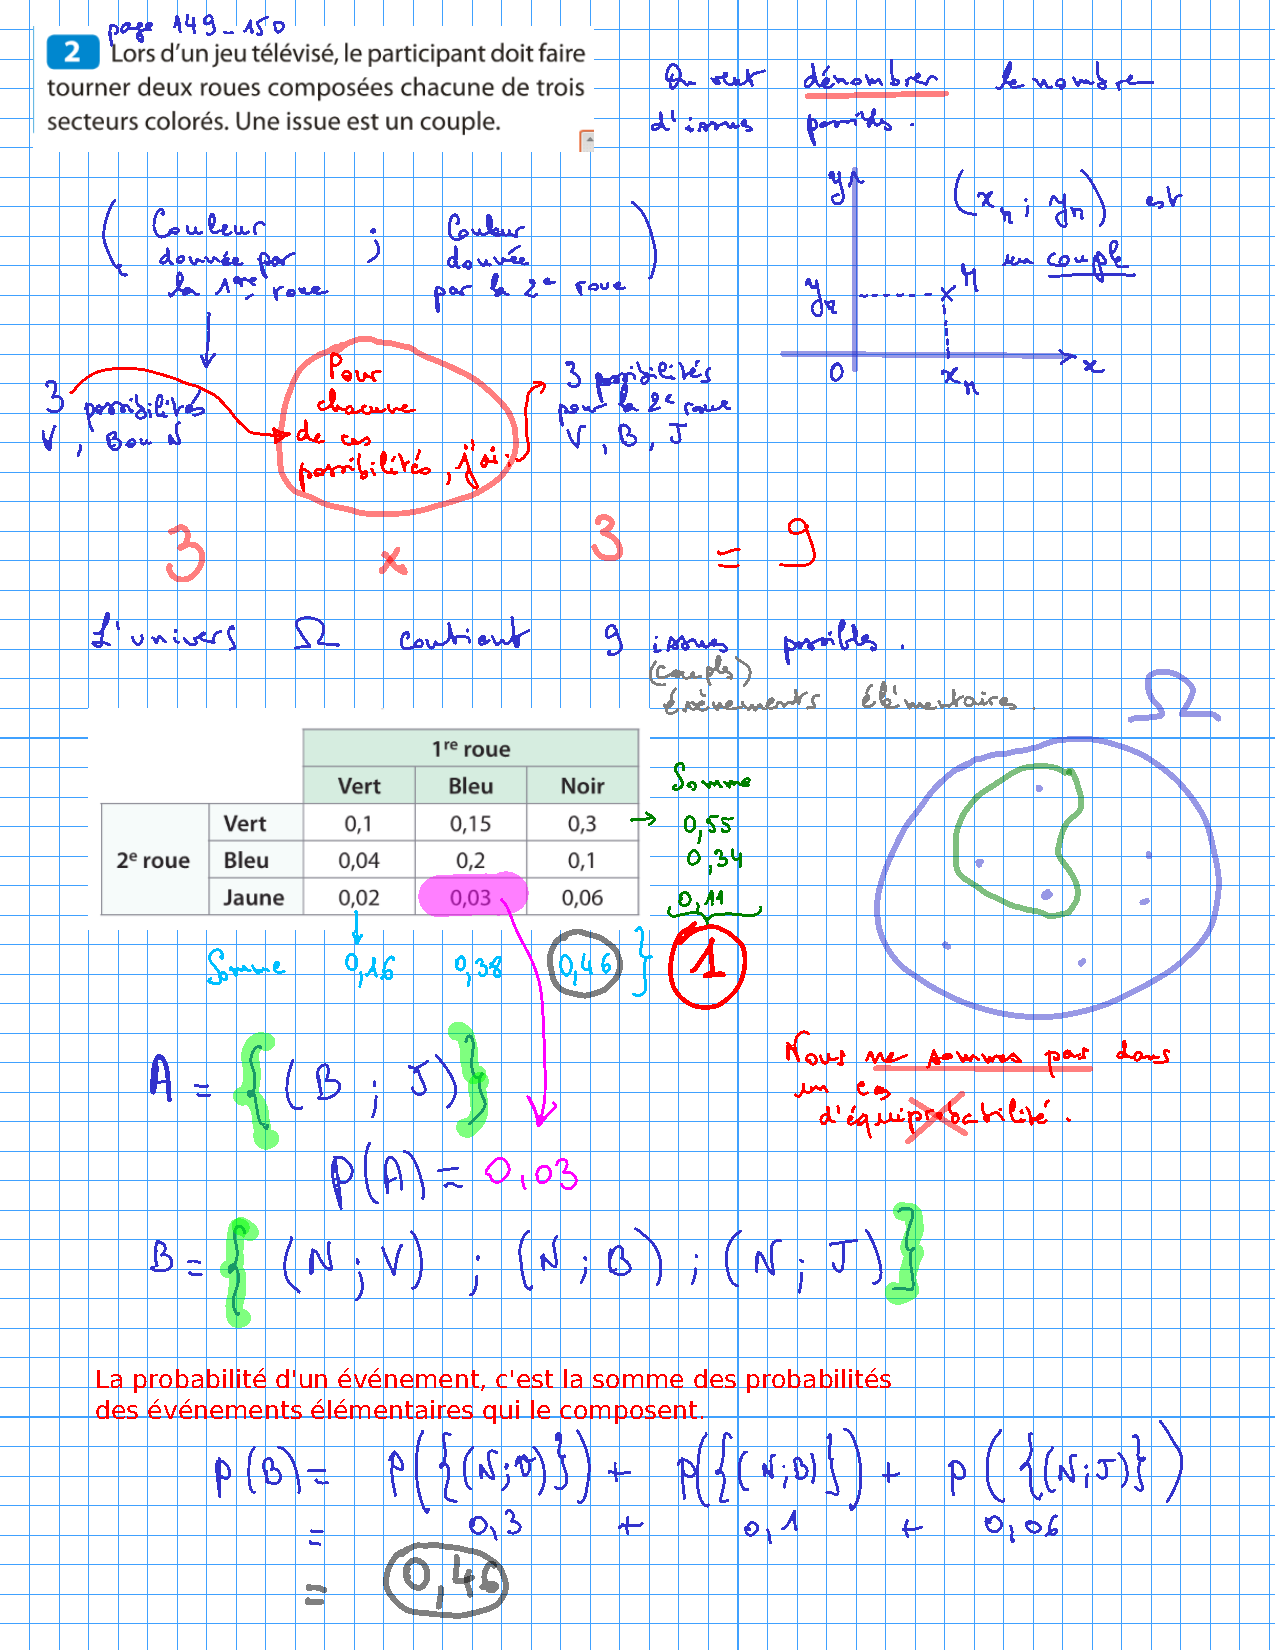 page 149-150
2 Lors d'un jeu télévisé, le participant doit faire
tourner deux roues composées chacune de trois
secteurs colorés. Une issue est un couple.
On veut dénombrer le nombre
d'issues possibles.
( Couleur donnée par la 1ère roue ; Couleur donnée par la 2e roue )
y
(xM ; yM) est
un couple
M
yM
0
xM
x
3 possibilités
V, B ou N
Pour
chacune
de ces
possibilités, j'ai :
3 possibilités
pour la 2e roue
V, B, J
3 x 3 = 9
L'univers Ω contient 9 issues possibles.
(couples)
évènements élémentaires.
Ω
1re roue
Vert Bleu Noir
Somme
2e roue
Vert 0,1 0,15 0,3 → 0,55
Bleu 0,04 0,2 0,1 0,34
Jaune 0,02 0,03 0,06 0,11
Somme 0,16 0,38 0,46 } 1
Nous ne sommes pas dans
un cas
d'équiprobabilité.
A = {(B ; J)}
p(A) = 0,03
B = {(N ; V) ; (N ; B) ; (N ; J)}
La probabilité d'un événement, c'est la somme des probabilités
des événements élémentaires qui le composent.
p(B) = p({(N;V)}) + p({(N;B)}) + p({(N;J)})
= 0,3 + 0,1 + 0,06
= 0,46